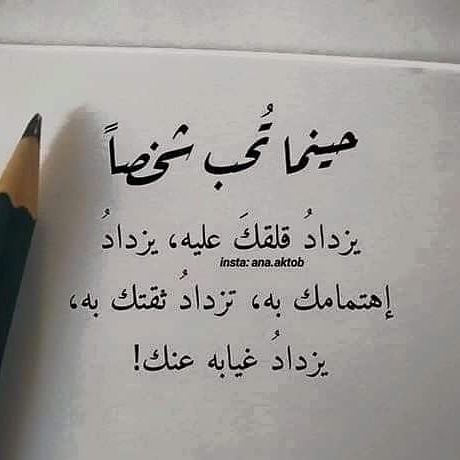 حينما تُحب شخصاً
يزدادُ قلقكَ عليه، يزدادُ
insta: ana.aktob
إهتمامك به، تزدادُ ثقتك به،
يزدادُ غيابه عنك!